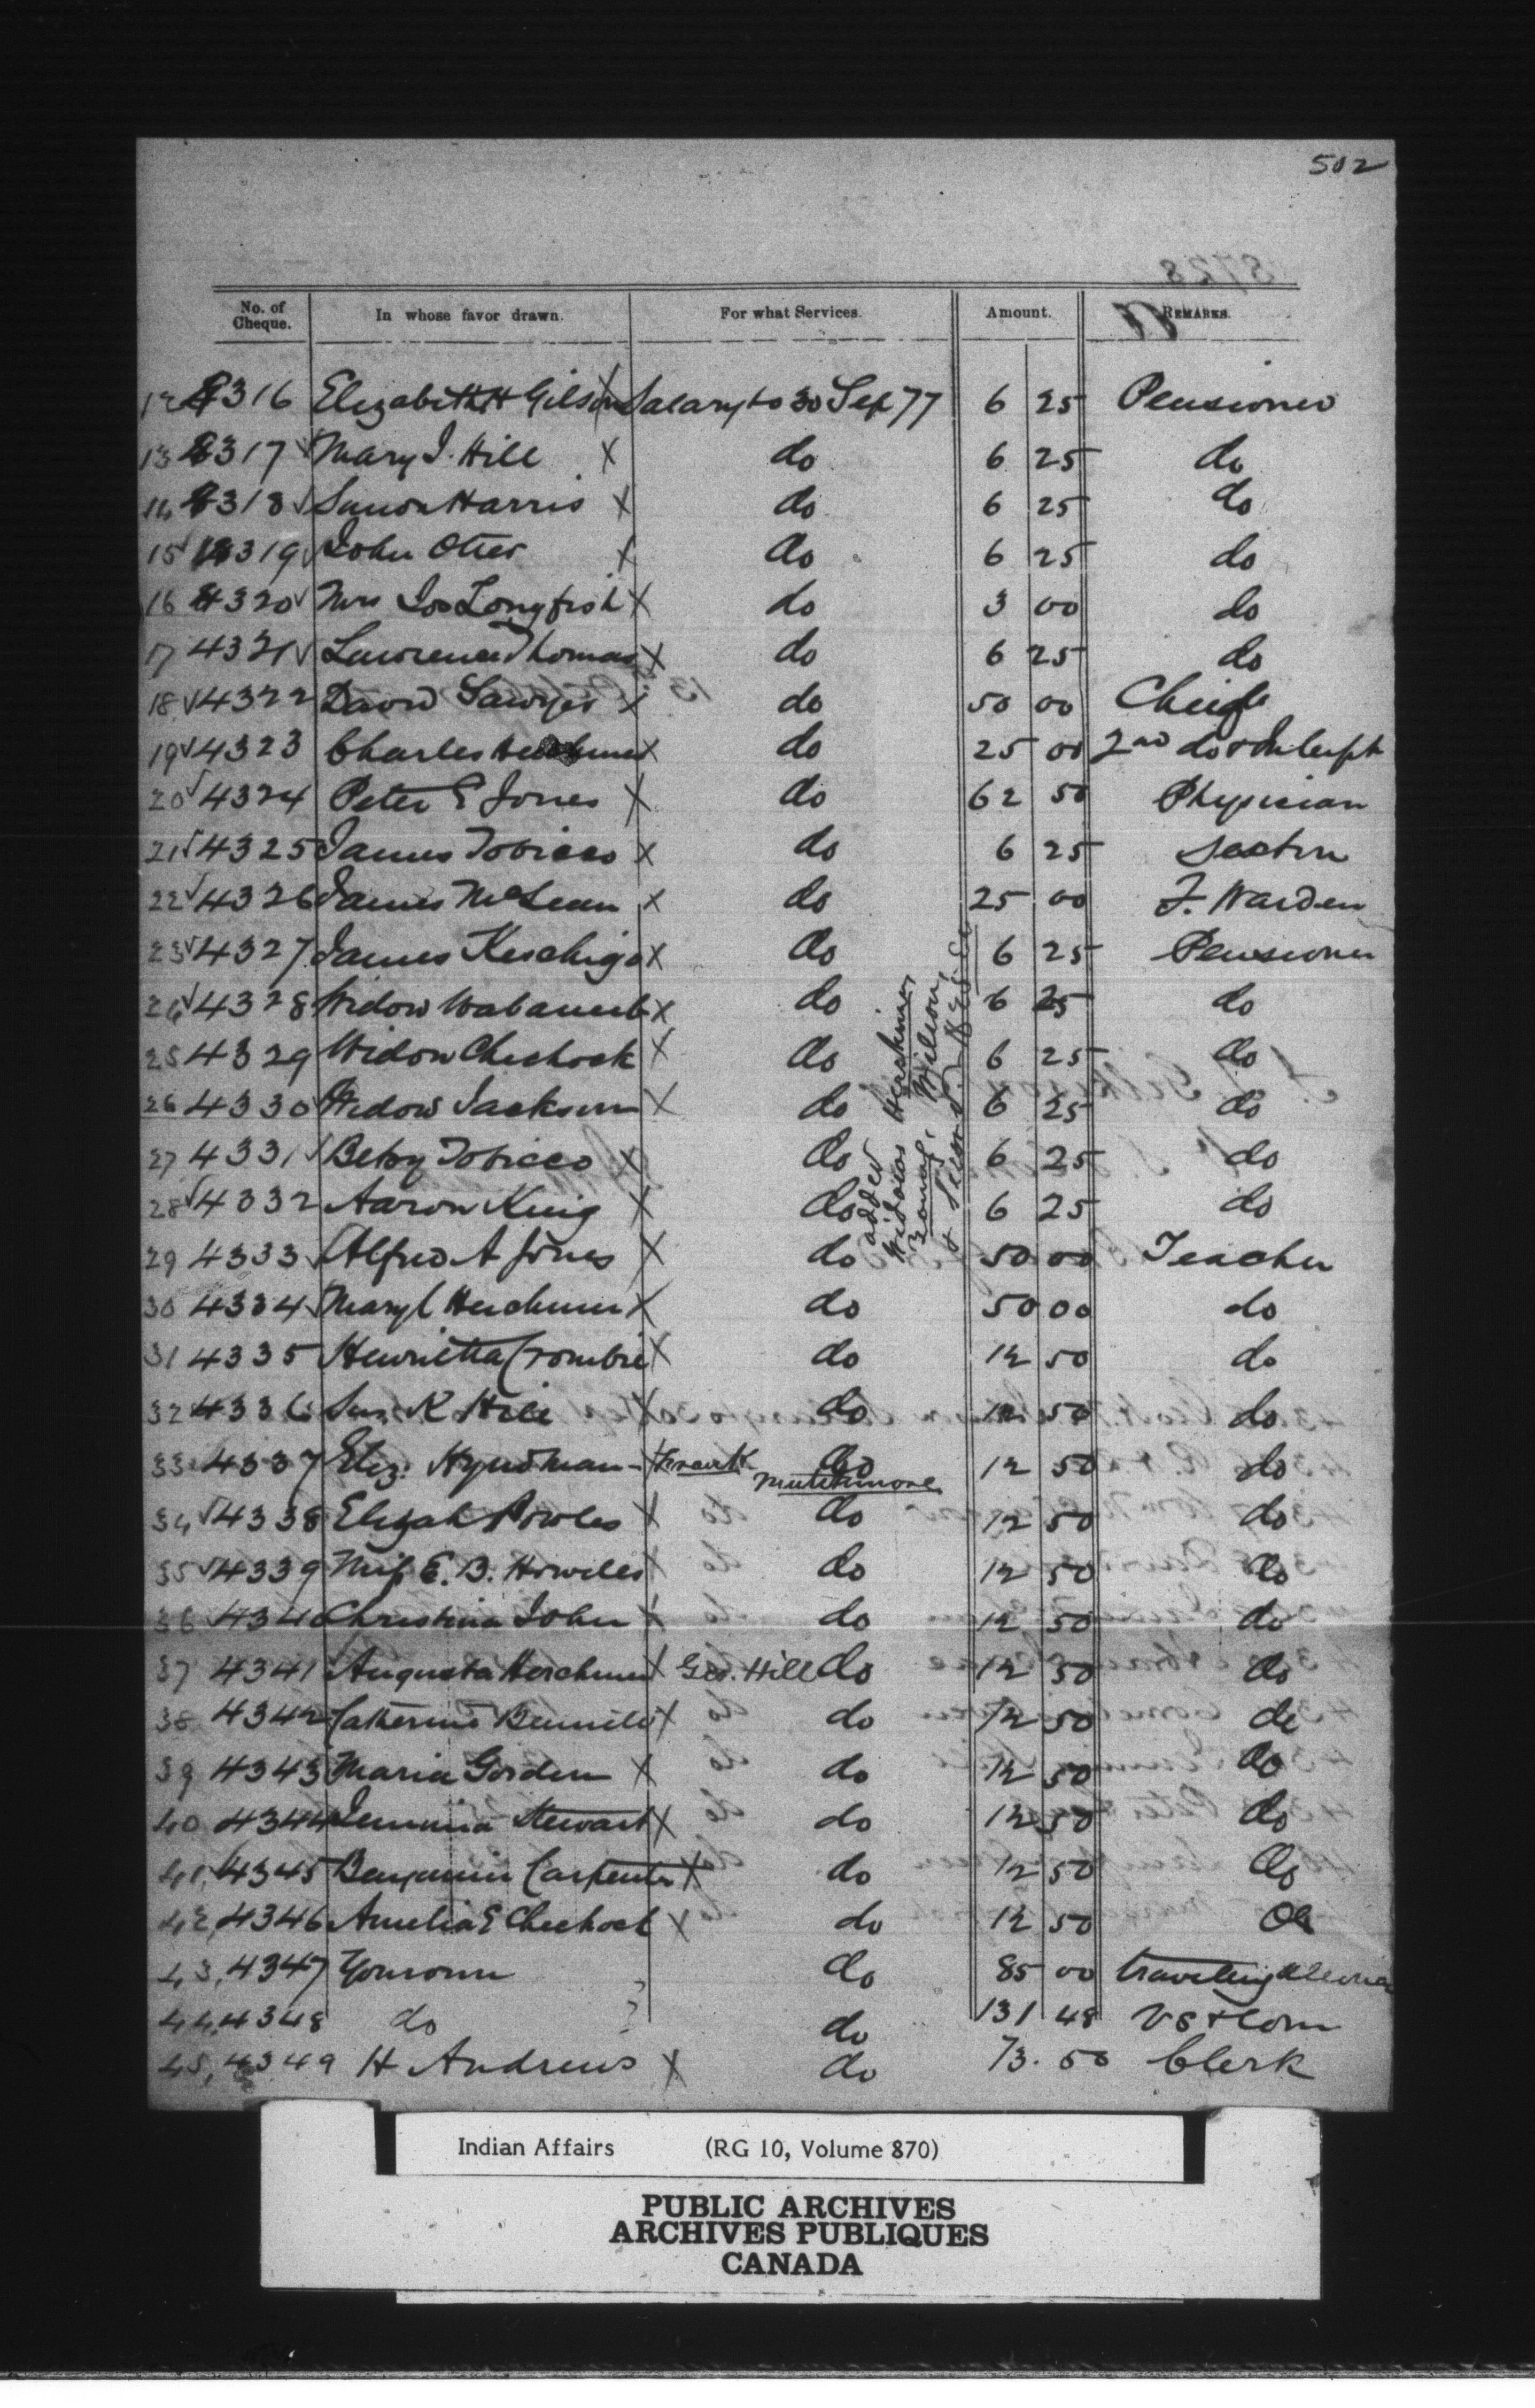 502
No. of Cheque. In whose favor drawn. For what Services. Amount. REMARKS.
12 4316 Elizabeth H Gilson X Salary to 30 Sep 77 6 25 Pensioner
13 4317 Mary J. Hill X do 6 25 do
14 4318 Simon Harris X do 6 25 do
15 4319 John Otter X do 6 25 do
16 4320 Mrs Jos Longfish X do 3 00 do
17 4321 Lawrence Thomas X do 6 25 do
18 4322 David Sawyer X do 50 00 Chief
19 4323 Charles Herchmer X do 25 00 2nd do &
20 4324 Peter E Jones X do 62 50 Physician
21 4325 James Tobicco X do 6 25 Sexton
22 4326 James McLean X do 25 00 F. Warden
23 4327 James Keschigo X do 6 25 Pensioner
24 4328 Widow X do 6 25 do
25 4329 Widow Chechock X do 6 25 do
26 4330 Widow Jackson X do 6 25 do
27 4331 Betsy Tobicco X do 6 25 do
28 4332 Aaron King X do 6 25 do
added
Widows Herchmer
Young, Wilson,
& Second
29 4333 Alfred A Jones X do 50 00 Teacher
30 4334 Mary C Herchmer X do 50 00 do
31 4335 Henrietta Crombie X do 12 50 do
32 4336 K Hill X do 12 50 do
33 4337 Eliz. Hyndman - X Frank Mutchmore do 12 50 do
34 4338 Elijah Powles X do 12 50 do
35 4339 Miss E. B. Howells X do 12 50 do
36 4340 Christina John X do 12 50 do
37 4341 Augusta Herchmer X Geo. Hill do 12 50 do
38 4342 Catherine X do 12 50 do
39 4343 Maria Gorden X do 12 50 do
40 4344 Jemima Stewart X do 12 50 do
41 4345 Benjamin Carpenter X do 12 50 do
42 4346 Amelia E Chechock X do 12 50 do
43 4347 do 85 00 traveling
44 4348 do do 131 48 & Com
45 4349 H Andrews X do 73. 50 Clerk
Indian Affairs (RG 10, Volume 870)
PUBLIC ARCHIVES
ARCHIVES PUBLIQUES
CANADA